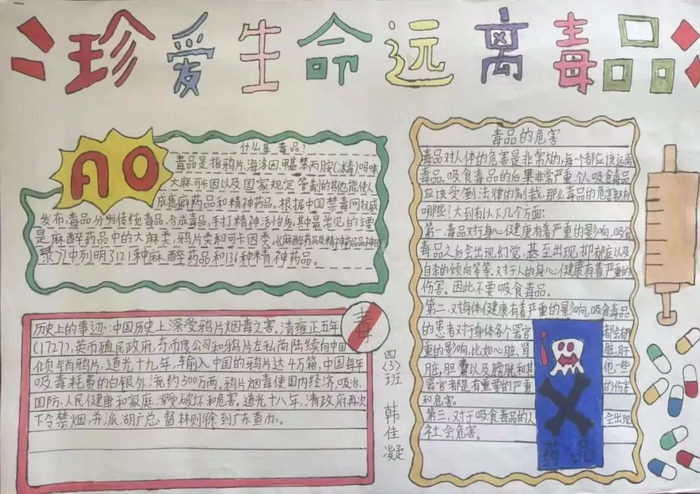 珍爱生命远离毒品
什么是毒品?
毒品是指鸦片,海洛因,甲基苯丙胺(冰毒)吗啡
大麻可卡因以及国家规定管制的其他能使人
成瘾麻药品和精神药品。根据中国禁毒网权威
发布,毒品分出传统毒品、合成毒品、
是麻醉药品中的大麻类,鸦片类和可卡因类。《麻醉药品及精神药品品种目
录》中列明了121种麻醉药品和131种精神药品。
NO
历史上的事迹:中国历史上深受鸦片烟毒之害,清雍正五年
(1727),英币殖民政府,东印度公司和鸦片走私商陆续向中国
倾销鸦片,道光十九年,输入中国的鸦片达4万箱,中国每年
吸毒耗费的白银外流约300万两,鸦片烟毒使国内经济,政治,
国防,人民健康和家庭深受破坏和危害。道光十八年,清政府再次
下令禁烟,并派湖广总督林则徐到广东查办。
毒
四(3)班
韩佳凝
毒品的危害
毒品对人体的危害是非常大的,每个都应该远离
毒品,吸食毒品的后果非常严重,个人吸食毒品
应该受到法律的制裁,那么毒品的危害都有
哪些?大到有以下几个方面:
第一,毒品对身心健康有着严重的影响,吸食
毒品之后会出现幻觉,甚至出现抑郁症以及
自杀的倾向等等,对于人的身心健康有着严重的
伤害,因此不要吸食毒品。
第二,对身体健康有着严重的影响,吸食毒品
的患者对于身体各个器官都会有严
重的影响,比如心脏,肾脏,肝
脏,胆囊以及膀胱和其他一些
器官都是有重要的严重的伤害
和危害。
第三,对于吸食毒品的人会出现
社会危害。
药品